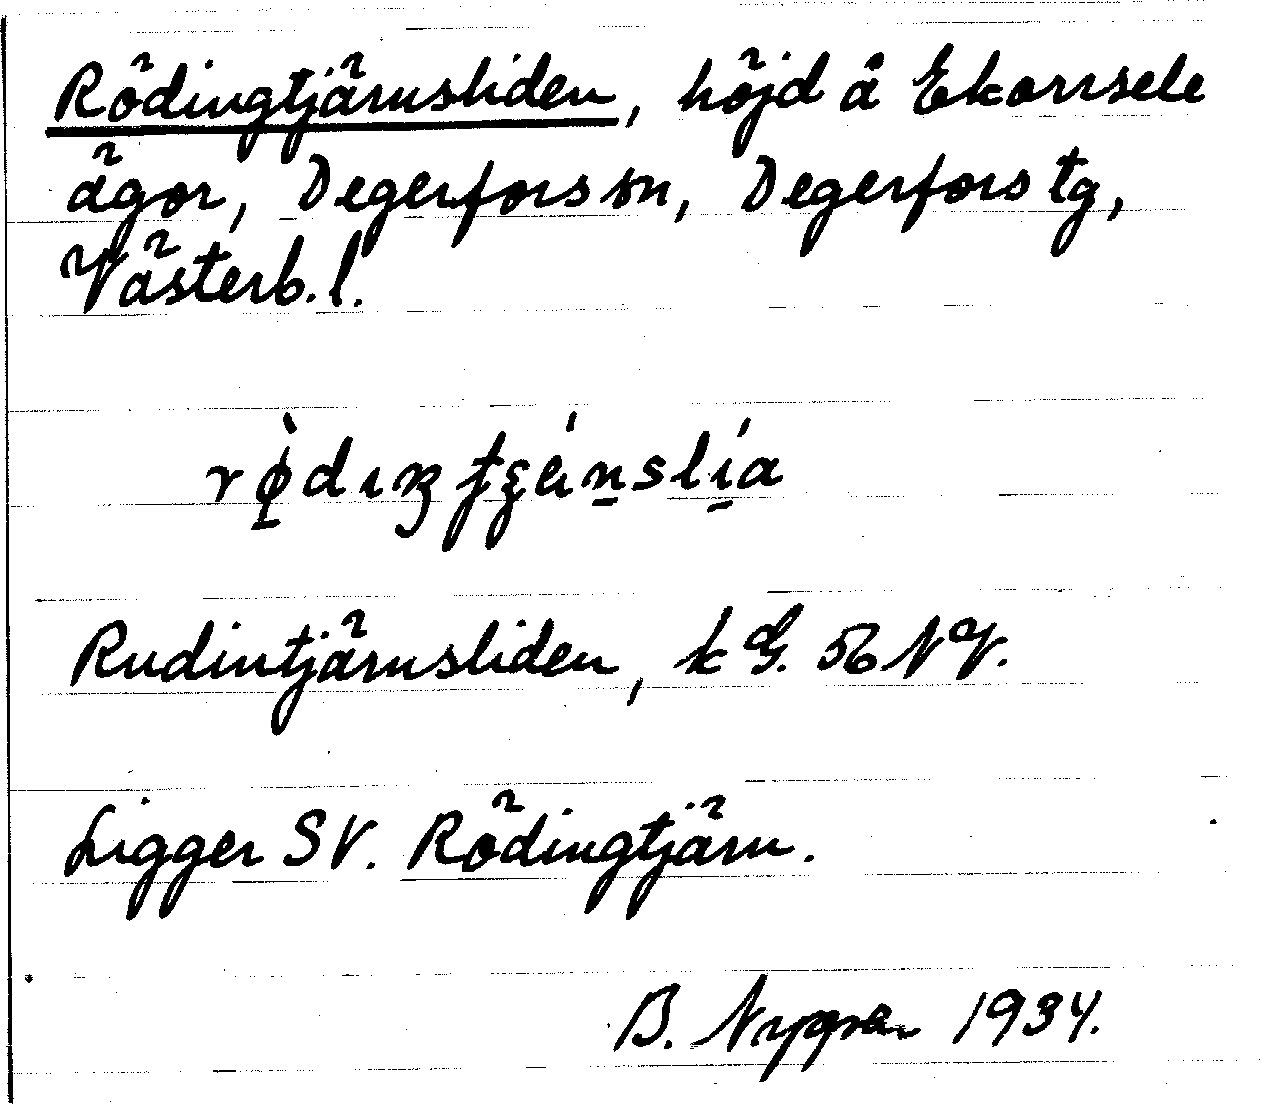 Rödingtjärnsliden, höjd å Ekorrsele
ägor, Degerfors sn, Degerfors tg,
Västerb. l.
Rudintjärnsliden, kG. 56 NV.
Ligger SV. Rödingtjärn.
B. Nygren 1934.